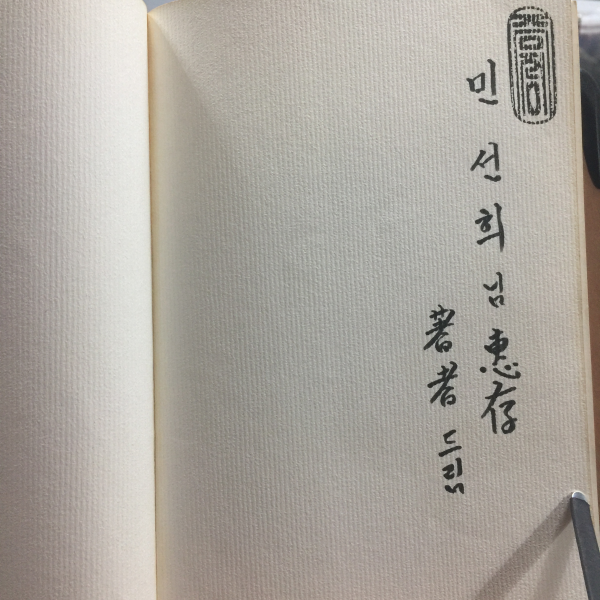 민선희님 惠存
著者 드림